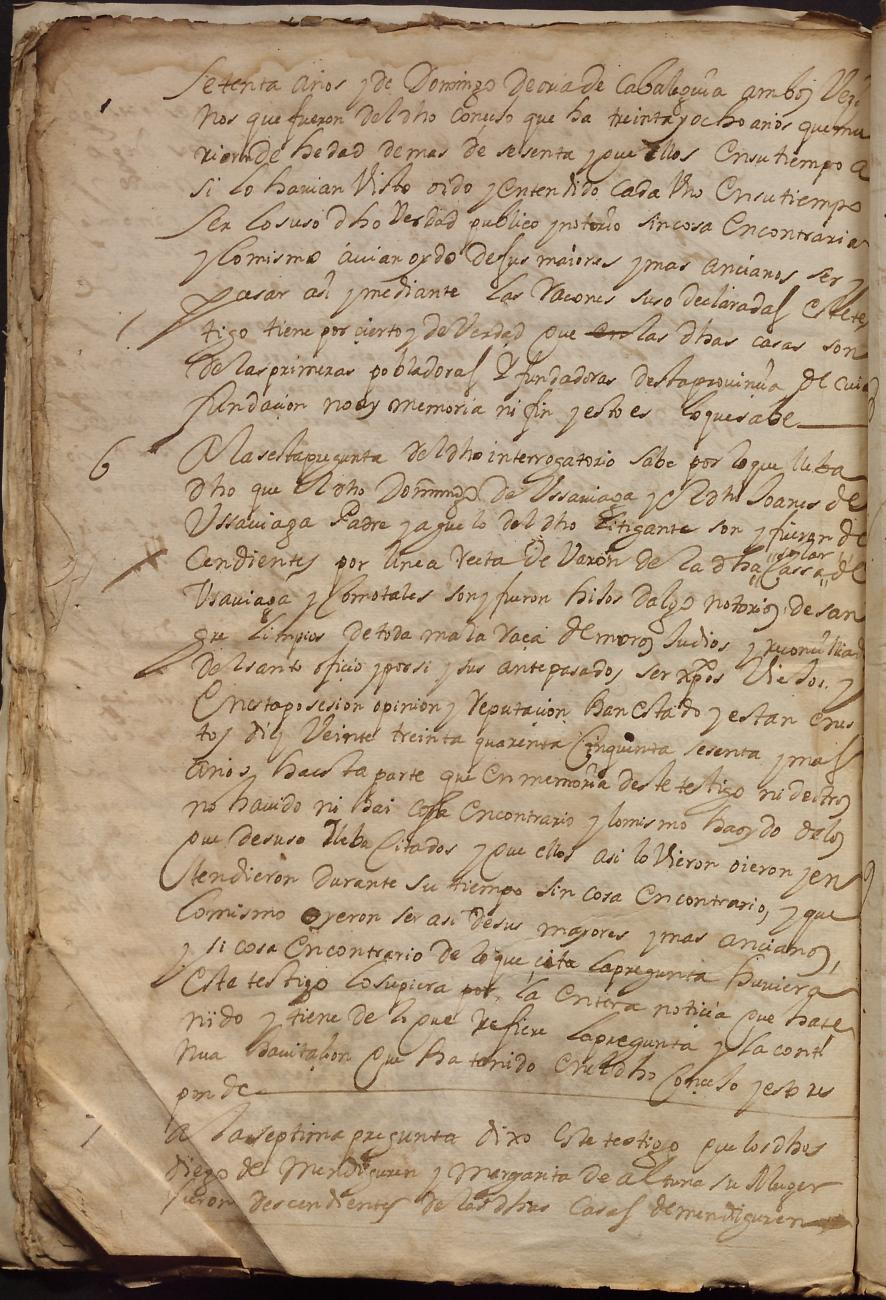 setenta años y de Domingo de oria de Cabaleguia ambos Vezi
nos que fueron del dho Conçeso que ha treinta y ocho años que mu
rieron de hedad de mas de sesenta y que ellos en su tiempo a
si lo havian Visto oido y entendido cada Vno en su tiempo
ser lo suso dho Verdad publico y notorio sin cosa en contrario
y lo mismo avian oydo de sus maiores y mas ançianos ser y
pasar asi y mediante las raçones suso declaradas este tes
tigo tiene por cierto y de Verdad que las dhas casas son
de las primeras pobladoras y fundadoras desta provinçia de cuia
fundaçion no ay memoria ni fin y esto es lo que sabe
6 A la sesta pregunta del dho interrogatorio sabe por lo que lleba
dho que el dho Domingo de Ussaviaga y el dho Joanes de
Ussaviaga Padre y aguelo del dho litigante son y fueron de
cendientes por linea recta de Varon de la dha solar Cassa de
Vsaviaga y como tales son y fueron hijos dalgo notorios de san
gre limpios de toda mala raça de moros Judios y reconçiliados
del santo ofiçio y por si y sus antepasados ser xpos Viejos y
en esta posesion opinion y reputaçion han estado y estan en es
tos diez Veinte treinta quarenta Cinquenta sesenta y mas
años hasta parte que en memoria deste testigo ni de otros
no havido ni hai cosa en contrario y lo mismo ha oydo de los
que de suso lleba Citados y que ellos asi lo Vieron oieron y en
tendieron durante su tiempo sin cosa en contrario, y que
lo mismo oyeron ser asi de sus mayores y mas ançianos,
y si cosa en contrario de lo que cita la pregunta huviera
este testigo lo supiera por la entera notiçia que ha te
nido y tiene de lo que refiere la pregunta y la conti
nua havitaçion que ha tenido en el dho Conçeso y esto res
ponde
7 A la septima pregunta dixo este testigo que los dhos
diego de Mendiguren y Margarita de altuna su Muger
fueron descendientes de las dhas Casas de mendiguren